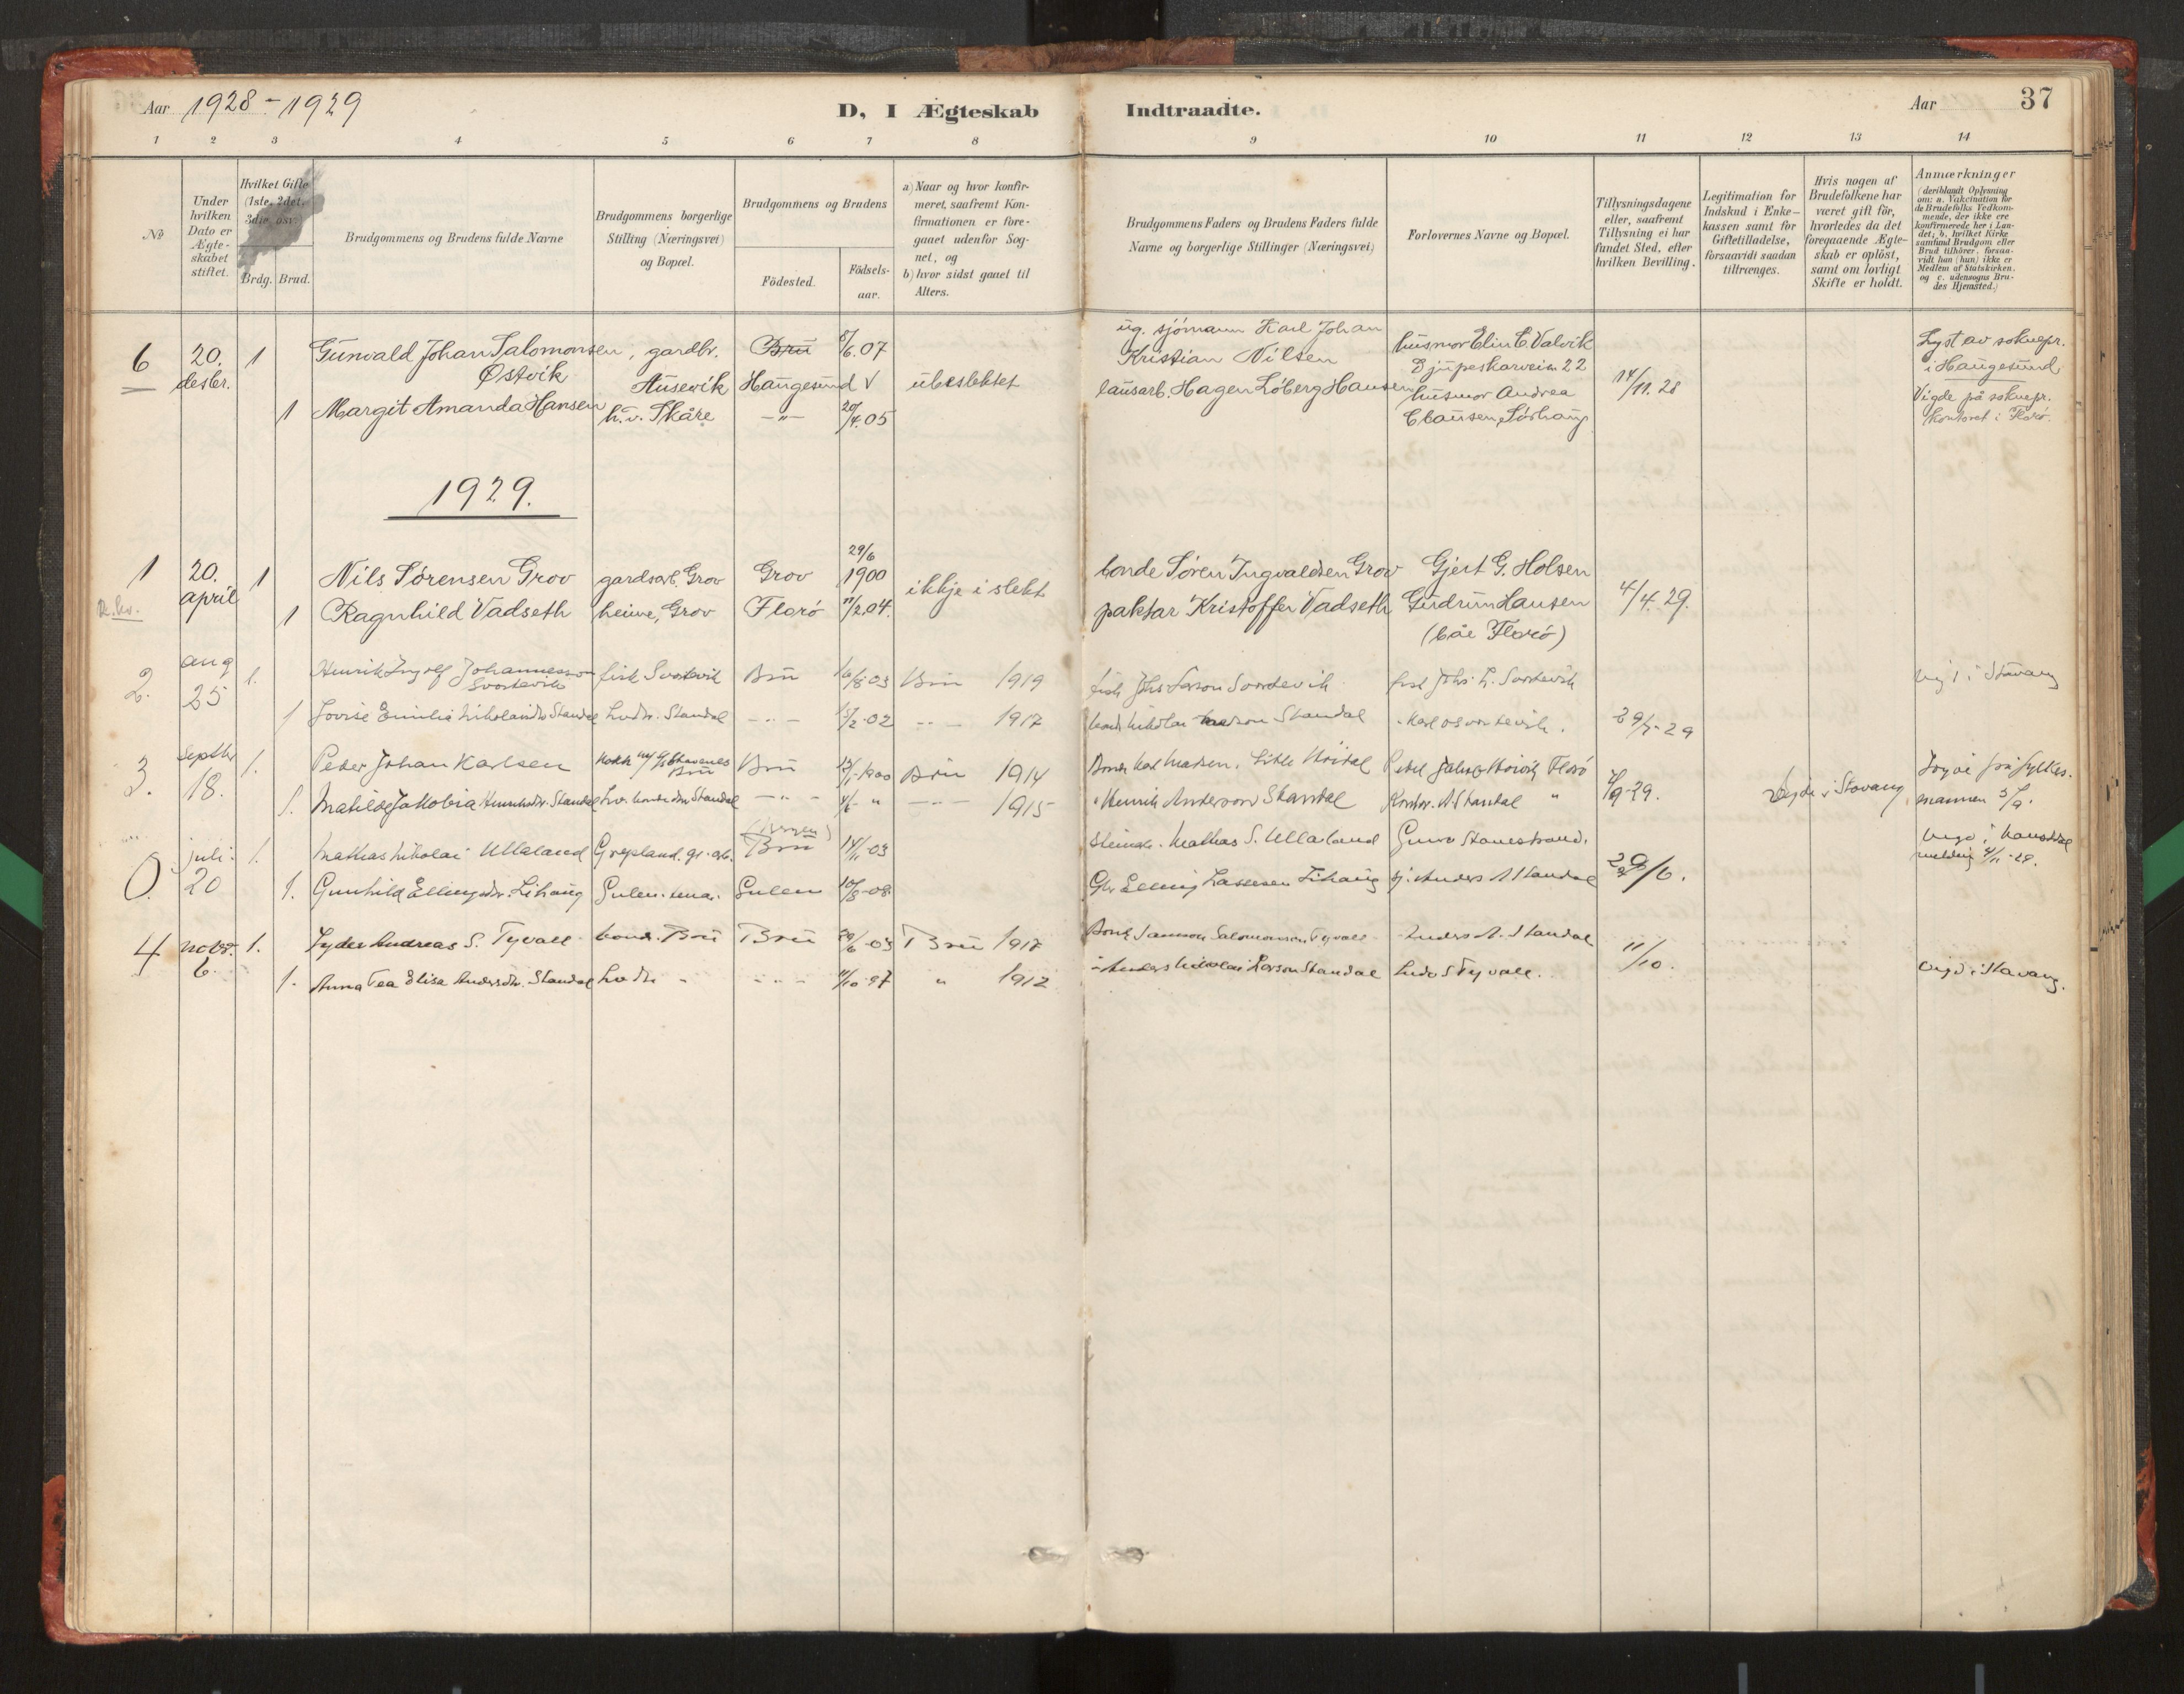 Aar 1928-1929
D, I Ægteskab Indtraadte.
Aar 37
1 2 3 4 5 6 7 8 9 10 11 12 13 14
No
Under hvilken Dato er Ægte-skabet stiftet.
Hvilket Gifte (1ste, 2det, 3die, osv.
Brdg. Brud.
Brudgommens og Brudens fulde Navne
Brudgommens borgerlige Stilling (Næringsvei) og Bopæl.
Brudgommens og Brudens
Födested.
Födsels-aar.
a) Naar og hvor konfir-meret, saafremt Kon-firmationen er fore-gaaet udenfor Sog-net, og
b) hvor sidst gaaet til Alters.
Brudgommens Faders og Brudens Faders fulde Navne og borgerlige Stillinger (Næringsvei)
Forlovernes Navne og Bopæl.
Tillysningsdagene eller, saafremt Tillysning ei har fundet Sted, efter hvilken Bevilling.
Legitimation for Indskud i Enke-kassen samt for Giftetilladelse, forsaavidt saadan tiltrænges.
Hvis nogen af Brudefolkene har været gift för, hvorledes da det foregaaende Ægte-skab er oplöst, samt om lovligt Skifte er holdt.
Anmærkninger (deriblandt Oplysning om: a. Vakcination for de Brudefolks Vedkom-mende, der ikke ere konfirmerede her i Lan-det; b. hvilket Kirke samfund Brudgom eller Brud tilhörer, forsaa-vidt han (hun) ikke er Medlem af Statskirken. og c. udensogns Bru-des Hjemsted.)
6 20. desbr. 1 Gunvald Johan Salomonsen Østvik, gardbr. Ausevik Bru Haugesund V 8/6.07 ubeslektet
ug. sjömann Karl Johan Kristian Nilsen husmor Elin C. Valvik Djupeskarveien 22 14/11. 28
Lyst av soknepr. i Haugesund
1 Margit Amanda Hansen h.v. Skåre -"- 20/4.05
lausarb. Hagen Løberg Hansen husmor Andrea Clausen, Sørhaug
Vigde på soknepr. kontoret i Florø.
1929.
1 20. april 1 Nils Sørensen Grov gardsarb. Grov Grov 29/6 1900 ikkje i slekt
bonde Søren Ingvaldsen Grov Gjert G. Holsen 4/4. 29.
1 Ragnhild Vadseth heime, Grov Florø 11/2.04.
paktar Kristoffer Vadseth Gudrun Hansen (båe Florø)
2. aug 25 1. Henrik Ingolf Johannesson Svortevik fisk Svortevik Bru 16/8-03 Bru 1919
fisk Johs Larson Svortevik fisk Johs. L. Svortevik
vigd i Stavang
1 Lovise Emilie Nikolaidtr Standal h.v.dtr. Standal -"- 15/2-02 -"- 1917
29/7-29
3. septbr 18. 1. Peter Johan Karlsen Bru 1900 Bru 1914
Bonde Karl Madsen, Litle Florø 7/9-29.
1. Matilde Jakobia Henriksdtr. Standal -"- -"- 1915
" Henrik Anderson Standal A Standal "
Vigde i Stavang
fylkes-mannen 3/9.
0. juli. 20 1. Mathias Nikolai Ullaland Grepland. Bru 14/11-03
Mathias S. Ullaland 29/6.
1. Gunhild Ellingsdtr. Lihaug Gulen. Gulen 10/8-08
Elling Lassesen Lihaug Anders A Standal
4 novbr. 6. 1. Lyder Andreas S. Tyvoll bonde. Bru Bru 29/6-03 Bru 1917
Bonde Samson Salomonsen Tyvoll Anders N. Standal 11/10.
1. Anna Tea Elisa Andersdtr. Standal h.v.dtr. " -"- 4/10-97 " 1912
" Anders Nikolai Larson Standal Ludv S Tyvoll.
vigd i Stavang.